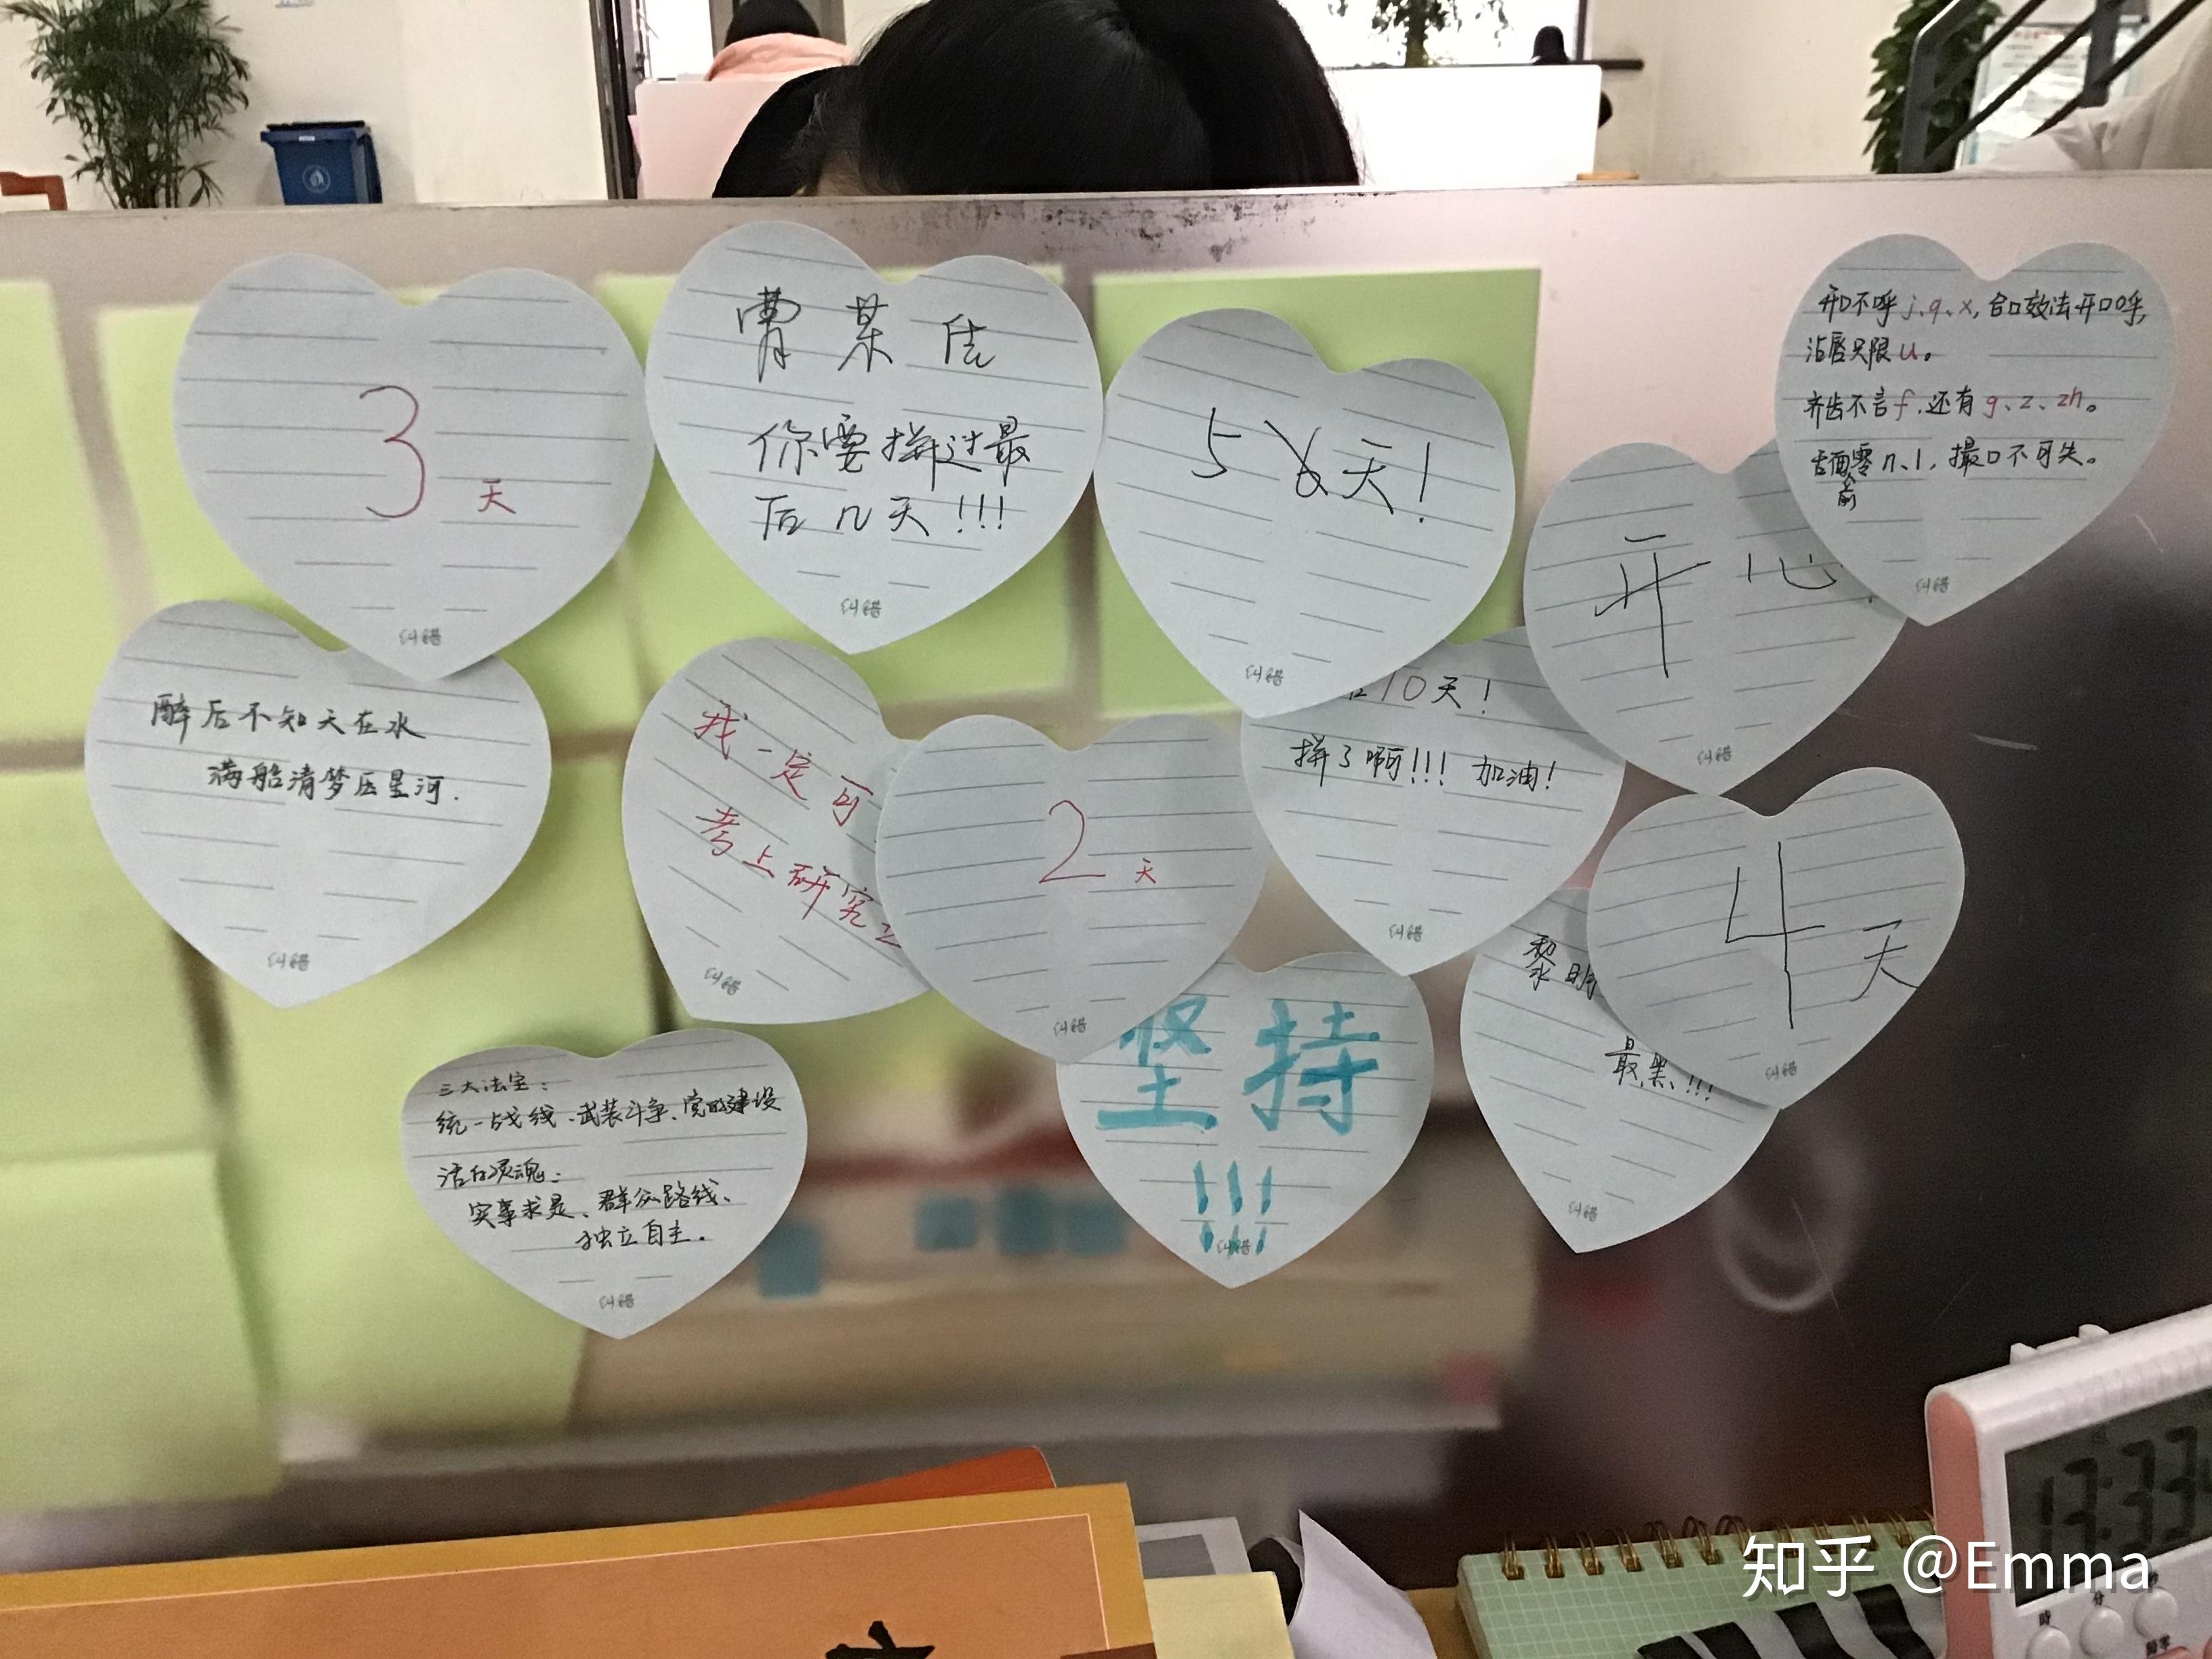 3
天
纠错
你要拼过最
后几天!!!
纠错
5 天!
纠错
开心
纠错
开口不呼j、q、x,合口效法开口呼,
沾唇只限u。
齐齿不言f,还有g、z、zh。
舌面零n、l,撮口不可失。
前
纠错
醉后不知天在水
满船清梦压星河.
纠错
我一定可
考上研究
纠错
2
天
纠错
10天!
拼了啊!!! 加油!
纠错
4
天
纠错
黎明
最黑!!!
纠错
三大法宝:
统一战线、武装斗争、党的建设
活的灵魂:
实事求是、群众路线、
独立自主。
纠错
坚持
!!!
纠错
时
分
知乎 @Emma